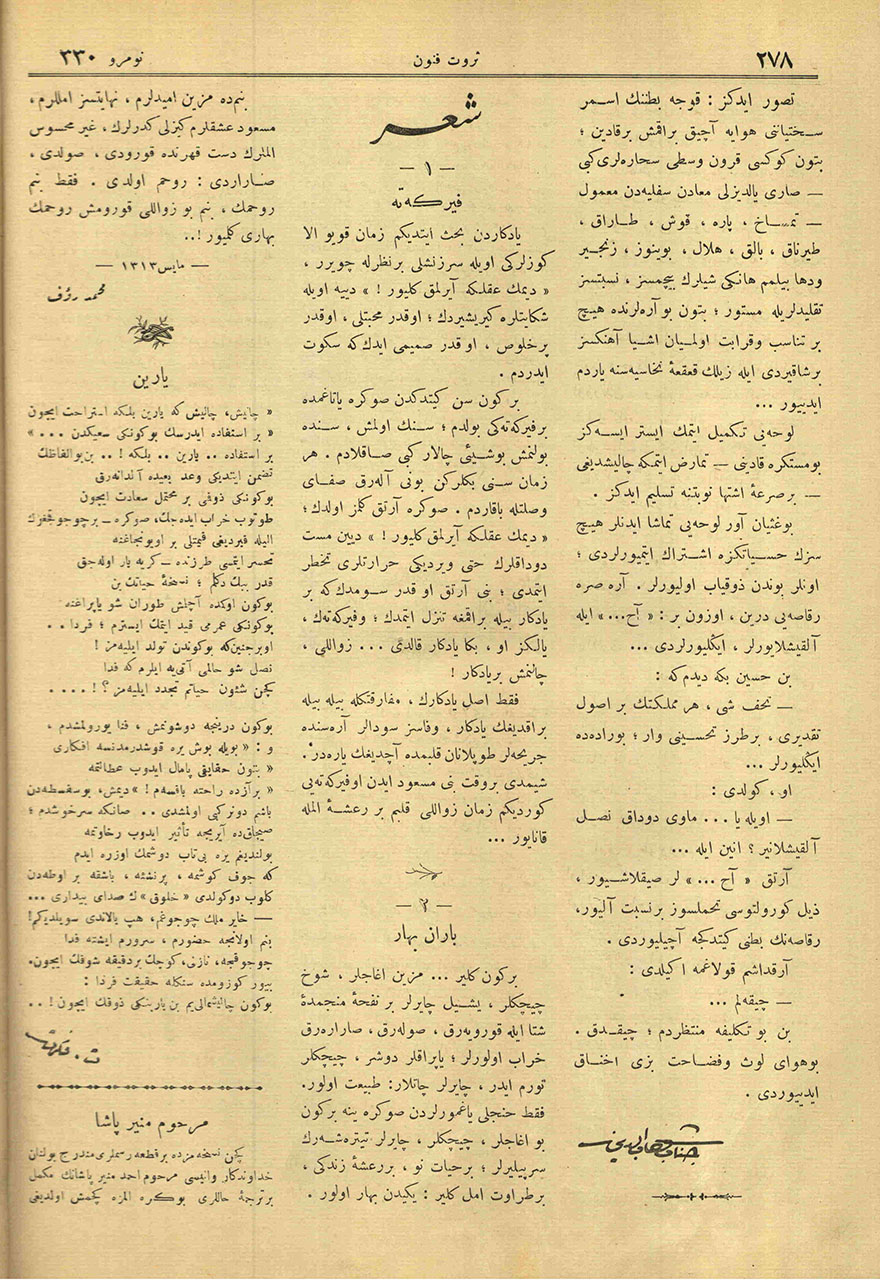 ٢٧٨
ثروت فنون
نومرو ٣٣٠
تصور ايدكز : قوجه بطننك اسمر
سختيانى هوايه آچيق براقمش برقادين ؛
بتون كوكسى قرون وسطى سحاره‌لرى كبى
— صارى يالديزلى معادن سفليه‌دن معمول
— تمساخ ، پاره ، قوش ، طاراق ،
طيرناق ، بالق ، هلال ، بوينوز ، زنجير
ودها بيلمم هانكى شيلرك بيچمسز ، نسبتسز
تقليدلريله مستور ؛ بتون بو آره‌لرنده هيچ
بر تناسب وقرابت اولميان اشيا آهنكسز
برشاقيردى ايله زيلك قعقعۀ نحاسيه‌سنه ياردم
ايدييور ...
لوحه‌يى تكميل ايتمك ايستر ايسه‌كز
بومستكره قادينى — تمارض ايتمكه چاليشديغى
— برصرعۀ اشتها نوبتنه تسليم ايدكز .
بو غثيان آور لوحه‌يى تماشا ايدنلر هيچ
سزك حسياتكزه اشتراك ايتميورلردى ؛
اونلر بوندن ذوقياب اوليورلر . آره صره
رقاصه‌يى درين ، اوزون بر : « آخ ... » ايله
آلقيشلايورلر ، ايكليورلردى ...
بن حسين بكه ديدم كه :
— تحف شى ، هر مملكتك بر اصول
تقديرى ، برطرز تحسينى وار ؛ بوراده‌ده
ايكليورلر ...
او ، كولدى :
— اويله يا ... ماوى دوداق نصل
آلقيشلانير ؟ انين ايله ...
آرتق « آخ ... » لر صيقلاشيور ،
ذيل كورولتوسى تحملسوز برنسبت آليور،
رقاصه‌نك بطنى كيتدكجه آچيليوردى .
آرقداشم قولاغمه اكيلدى :
— چيقه‌لم ...
بن بو تكليفه منتظردم ؛ چيقدق .
بوهواى لوث وفضاحت بزى اختناق
ايدييوردى .
جناب شهاب الدين
شعر
— ١ —
فيركه‌ته
يادكاردن بحث ايتديكم زمان قويو الا
كوزلركى اويله سرزنشلى برنظرله چويرر ،
« ديمك عقلكه آيرلمق كليور ! » دييه اويله
شكايتلره كيريشيردك ؛ اوقدر محبتلى ، اوقدر
پرخلوص ، او قدر صميمى ايدك كه سكوت
ايدردم .
بر كون سن كيتدكدن صوكره ياتاغمده
برفيركه‌ته‌كى بولدم ؛ سنك اولمش ، سنده
بولنمش بوشيئى چالار كبى صاقلادم . هر
زمان سنى بكلركن بونى آله‌رق صفاى
وصلتله باقاردم . صوكره آرتق كلمز اولدك ؛
« ديمك عقلكه آيرلمق كليور ! » ديين مست
دوداقلرك حتى ويرديكى حرارتلرى تخطر
ايتمدى ؛ بنى آرتق او قدر سومدك كه بر
يادكار بيله براقمغه تنزل ايتمدك ؛ وفيركه‌ته‌ك ،
يالكز او ، بكا يادكار قالدى ... زواللى ،
چالنمش بريادكار !
فقط اصل يادكارك ، مفارقتكله بيله بيله
براقديغك يادكار ، وفاسز سودالر آره‌سنده
جريحه‌لر طوپلانان قلبمده آچديغك ياره‌در.
شيمدى بروقت بنى مسعود ايدن اوفيركه‌ته‌يى
كورديكم زمان زواللى قلبم بر رعشۀ المله
قانايور ...
— ٢ —
باران بهار
بركون كلير ... مزين اغاجلر ، شوخ
چيچكلر ، يشيل چايرلر بر نفحۀ منجمدۀ
شتا ايله قورويه‌رق ، صوله‌رق ، صاراره‌رق
خراب اولورلر ؛ ياپراقلر دوشر ، چيچكلر
تورم ايدر ، چايرلر چاتلار: طبيعت اولور.
فقط خنجلى ياغمورلردن صوكره ينه بركون
بو اغاجلر ، چيچكلر ، چايرلر تيتره‌شه‌رك
سرپيليرلر ؛ برحيات نو ، بررعشۀ زندكى ،
برطراوت امل كلير : يكيدن بهار اولور .
بنم‌ده مزين اميدلرم ، نهايتسز امللرم ،
مسعود عشقلرم كيزلى كدرلرك ، غير محسوس
المارك دست قهرنده قورودى ، صولدى ،
صاراردى : روحم اولدى . فقط بنم
روحمك ، بنم بو زواللى قورومش روحمك
بهارى كلميور !..
— مايس ١٣١٣ —
محمد رؤف
يارين
« چاليش، چاليش كه يارين بلكه استراحت ايچون
« بر استفاده ايدرسك بوكونكى سعيكدن ... »
بر استفاده .. يارين .. بلكه ! .. بن بوالفاظك
تضمن ايتديكى وعد بعيده آلدانه‌رق
بوكونكى ذوقى بر محتمل سعادت ايچون
طوتوب خراب ايده‌جك، صوكره — برچوجوقجغزك
اليله قيرديغى قيمتلى بر اويونجاغنه
تحسر ايتمسى طرزنده — كريه بار اوله‌جق
قدر ببك دكلم ؛ نسخۀ حياتك بن
بوكون اوكده آچلش طوران شو ياپراغنه
بوكونكى عمرمى قيد ايتمك ايسترم ؛ فردا . .
اوبرجنين‌كه بوكوندن تولد ايليه‌مز !
نصل شو حالمى آتى‌يه ايلرم كه فدا
كچن شئون حياتم تجدد ايليه‌مز ؟ ! . . . .
بوكون درينجه دوشونمش ، فنا يورولمشدم ،
و : « بويله بوش يره قوشدرمدنسه افكارى
« بتون حقايقى پامال ايدوب عطالتمه
« برآزده راحته باقسه‌م ! » ديمش، بوسفسطه‌دن
باشم دونركبى اولمشدى . . صانكه سرخوشدم ؛
صيجاق‌ده آيريجه تأثير ايدوب رخاوتمه
بولنديغم يره بى‌تاب دوشمك اوزره ايدم
كه جوف كوشمه ، پرنشئه ، باشقه بر اوطه‌دن
كلوب دوكولدى « خلوق » ك صداى بيدارى ...
— خاير ملك چوجوغم، هپ يالاندى سويلديكم!
بنم اولانجه حضورم ، سرورم ايشته فدا
چوجوقجغه، نازلى، كوچك بردقيقه شوقك ايچون.
بيور كوزومده سنكله حقيقت فردا :
بوكون چاليشمالى‌يم بن يارينكى ذوقك ايچون ! ..
ت . فكرت
مرحوم منير پاشا
كچن نسخه مزده برقطعه رسملرى مندرج بولنان
خداوندكار واليسى مرحوم احمد منير پاشانك مكمل
برترجمۀ حاللرى بوكره المزه كچمش اولديغى